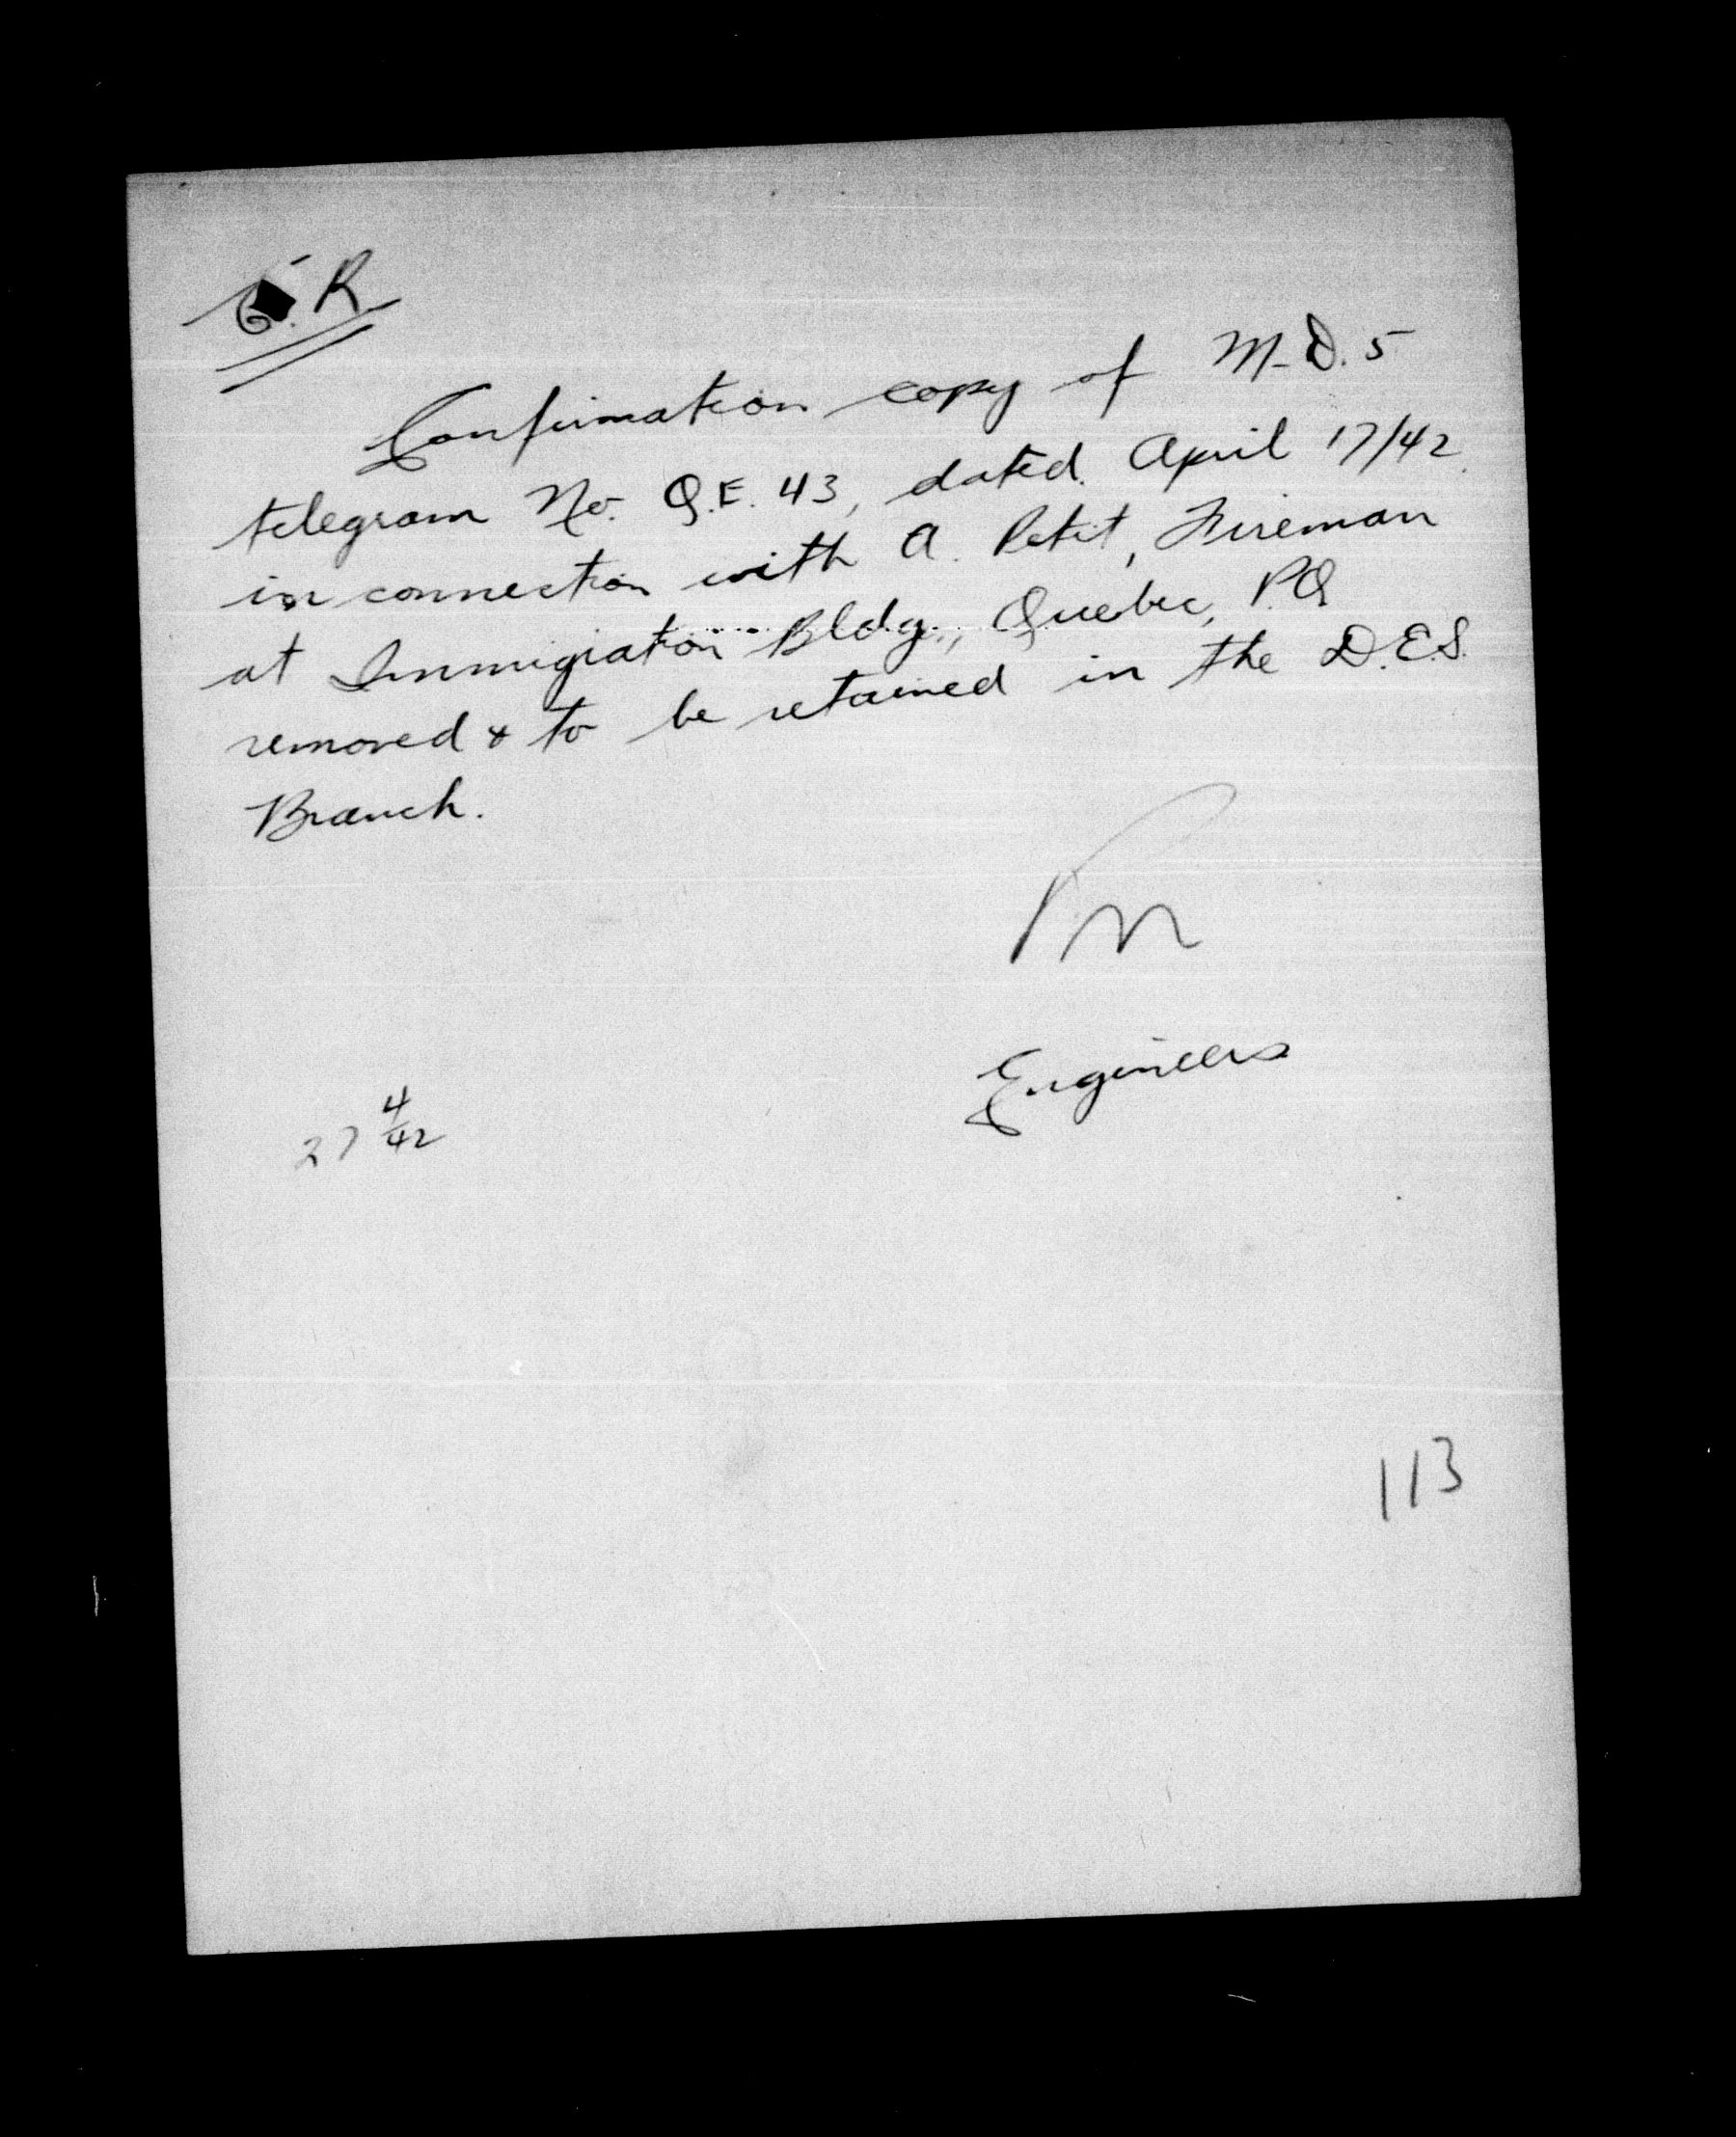 C.R.
Confirmation copy of M.D. 5
telegram No. Q.E. 43, dated April 17/42
in connection with A. Petit, Fireman
at Immigration Bldg., Quebec, P.Q
removed & to be retained in the D.E.S.
Branch.
Engineers
27 4/42
113